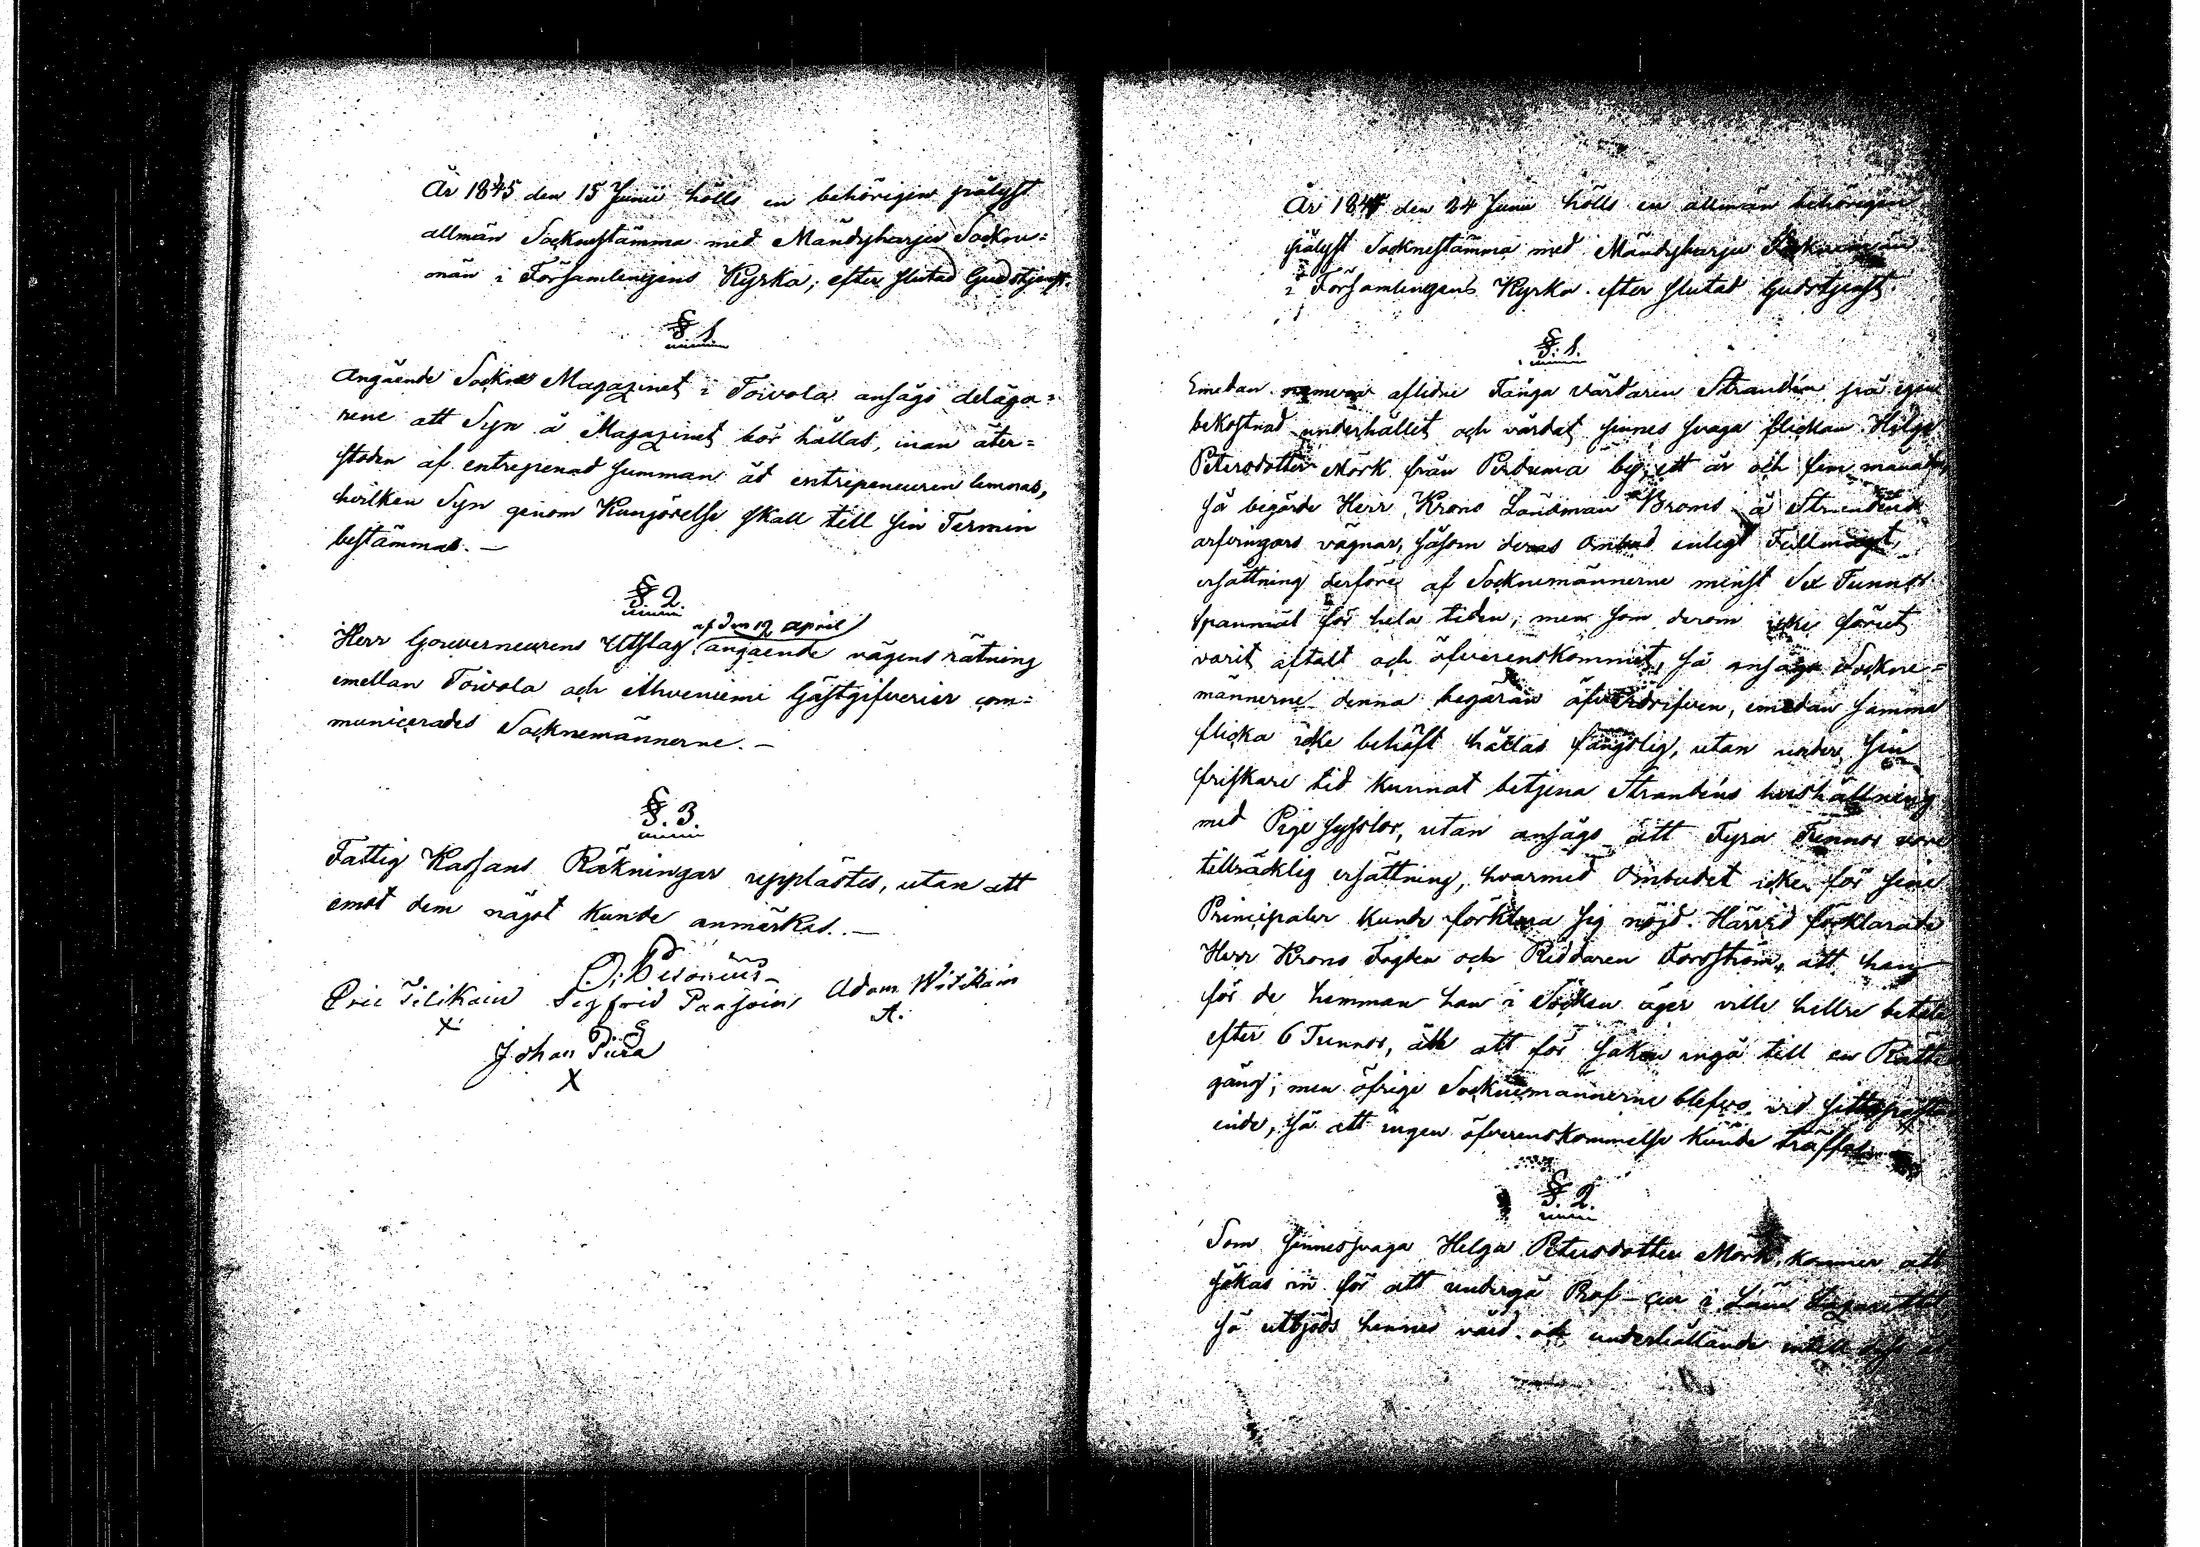 År 1845 den 15 Junii hölls en behörigen pålyst
allmän Sockne­stämma med Mändyharju Sockne=
män i Församlingens Kyrka, efter slutad Gudstjenst.
§ 1.
Angående Sockne Magazinet i Toivola ansågo deläga=
rene att Syn å Magazinet bör hållas, inan åter=
stoden af entrepenad summan åt entrepeneuren lemnas,
hvilken Syn genom Kungörelse skall till sin Termin
bestämmas. —
§ 2.
af den 12 april
Herr Gouverneurens Utslag angående vägens rätning
emellan Toivola och Ahveniemi Gästgifverier com=
municerades Socknemännerne. —
§. 3.
Fattig Kassans Räkningar upplästes, utan att
emot dem något kunde anmärkas. —
Eric Tilikain Sigfrid Paasoin Adam Witikain
X A.
Johan Pura
X
År 184 den 24 Junii hölls en allmän behörigen
pålyst Socknestämma med Mändyharju
i Församlingens Kyrka efter slutad Gudstjenst.
§. 1.
Emedan numera aflidne Fånga vårdaren Strandén på egen
bekostnad underhållit och vårdat sinnes svaga flickan Helga
Petersdotter Mörk från Perduma by, ett år och fem månader,
så begärde Herr Krono Länsman Broms å Strandéns
arfvingars vägnar, såsom deras Ombud enligt Fullmagt,
ersättning derföre af Socknemännerne minst Sex Tunnor
Spannmål för hela tiden, men som derom icke förut
varit aftalt och öfverenskommet, så ansågo Sockne=
männerne denna begäran öfverdrifven, emedan samma
flicka icke behöft hållas fängslig, utan under sin
friskare tid kunnat betjena Strandéns hushållning
med Pige sysslor, utan ansågs att Fyra Tunnor vore
tillräcklig ersättning, hvarmed Ombudet icke för sine
Principaler kunde förklara sig nöjd. Härvid förklarade
Herr Krono Fogden och Riddaren Forsström, att han
för de hemman han i Socken äger ville hellre betala
efter 6 Tunnor, än att för saken ingå till en Rätte
gång; men öfrige Socknemännerne blefvo vid sitt
ende, så att ingen öfverenskommelse kunde träffas.
§. 2.
Som sinnessvaga Helga Petersdotter Mörk, kommer att
sökas in för att undergå Prof-cur i Läns Lazarettet
så utbjöds hennes vård och underhållande intill dess